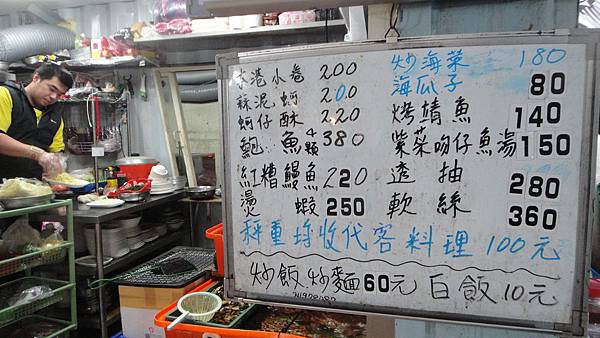 本港小卷 200
蒜泥蚵 200
蚵仔酥 220
鮑魚 4顆 380
紅糟鰻魚 220
燙蝦 250
炒海菜 180
海瓜子 80
烤鯖魚 140
紫菜吻仔魚湯 150
透抽 280
軟絲 360
秤重均收代客料理 100元
炒飯 炒麵 60元 白飯 10元